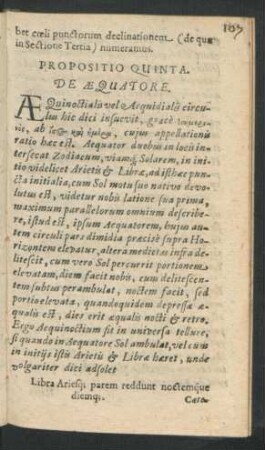 103
bet cœli punctorum declinationem (de qua
in Sectione Tertia) numeramus.
PROPOSITIO QUINTA.
DE ÆQUATORE.
ÆQuinoctialis vel Æquidialis circu-
lus hic dici insuevit, græcè
nic, ab cujus appellationis
ratio hæc est. Æquator duobus in locis in-
tersecat Zodiacum, viamq; Solarem, in ini-
tio videlicet Arietis & Libræ, ad isthæc pun-
cta initialia, cum Sol motu suo nativo devo-
lutus est, videtur nobis latione sua prima,
maximum parallelorum omnium describe-
re, istud est, ipsum Æquatorem, hujus au-
tem circuli pars dimidia præcisè supra Ho-
rizontem elevatur, altera medietas infra de-
litescit, cum vero Sol percurrit portionem
elevatam, diem facit nobis, cum delitescen-
tem subtus perambulat, noctem facit, sed
portio elevata, quandoquidem depressæ æ-
qualis est, dies erit æqualis nocti & retro.
Ergo Æquinoctium fit in universa tellure,
si quando in Æquatore Sol ambulat, vel cum
in initijs istis Arietis & Libræ hæret, unde
volgariter dici adsolet
Libra Ariesq; parem reddunt noctemque
diemq;.